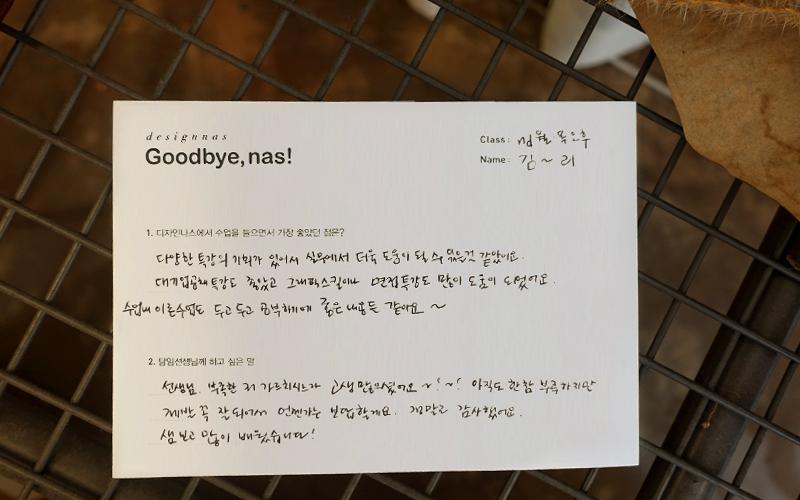 designnas
Goodbye, nas!
Class: 월 목 오후
Name: 김~리
1. 디자인나스에서 수업을 들으면서 가장 좋았던 점은?
다양한 특강의 기회가 있어서 실무에서 더욱 도움이 될 수 있을것 같았어요.
대기업공채특강도 좋았고 그래픽스킬이나 면접특강도 많이 도움이 되었어요.
수업내 이론수업도 두고두고 공부하기에 좋은 내용들 같아요 ~
2. 담임선생님께 하고 싶은 말
선생님. 부족한 저 가르치시느라 고생많으셨어요 ~!~! 아직도 한참 부족하지만
제발 꼭 잘되어서 언젠가는 보답할게요. 정말로 감사했어요.
샘 보고 많이 배웠습니다!